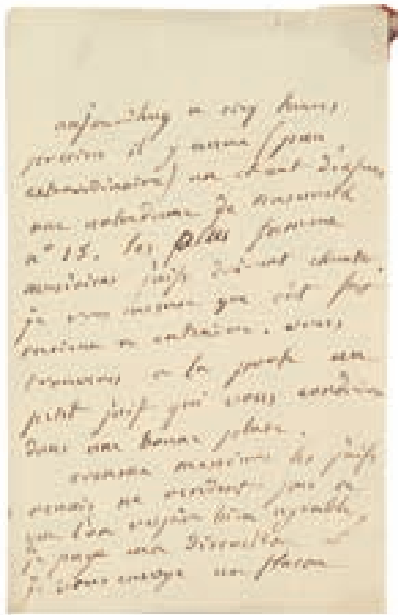 aujourdhuy a cinq heures
precise il y aura (par
extraordinaire) un chant d'
rue notre dame de nazareth
n° 15. les plus fameux
musiciens juifs doivent chanter.
je vous assure que c'est fort
curieux a entendre. vous
trouverez a la porte un
petit juif qui vous conduira
dans une bonne place.
les juifs
ne rendent pas ce
que l'on
je paye ma discretion et
je vous envoye un